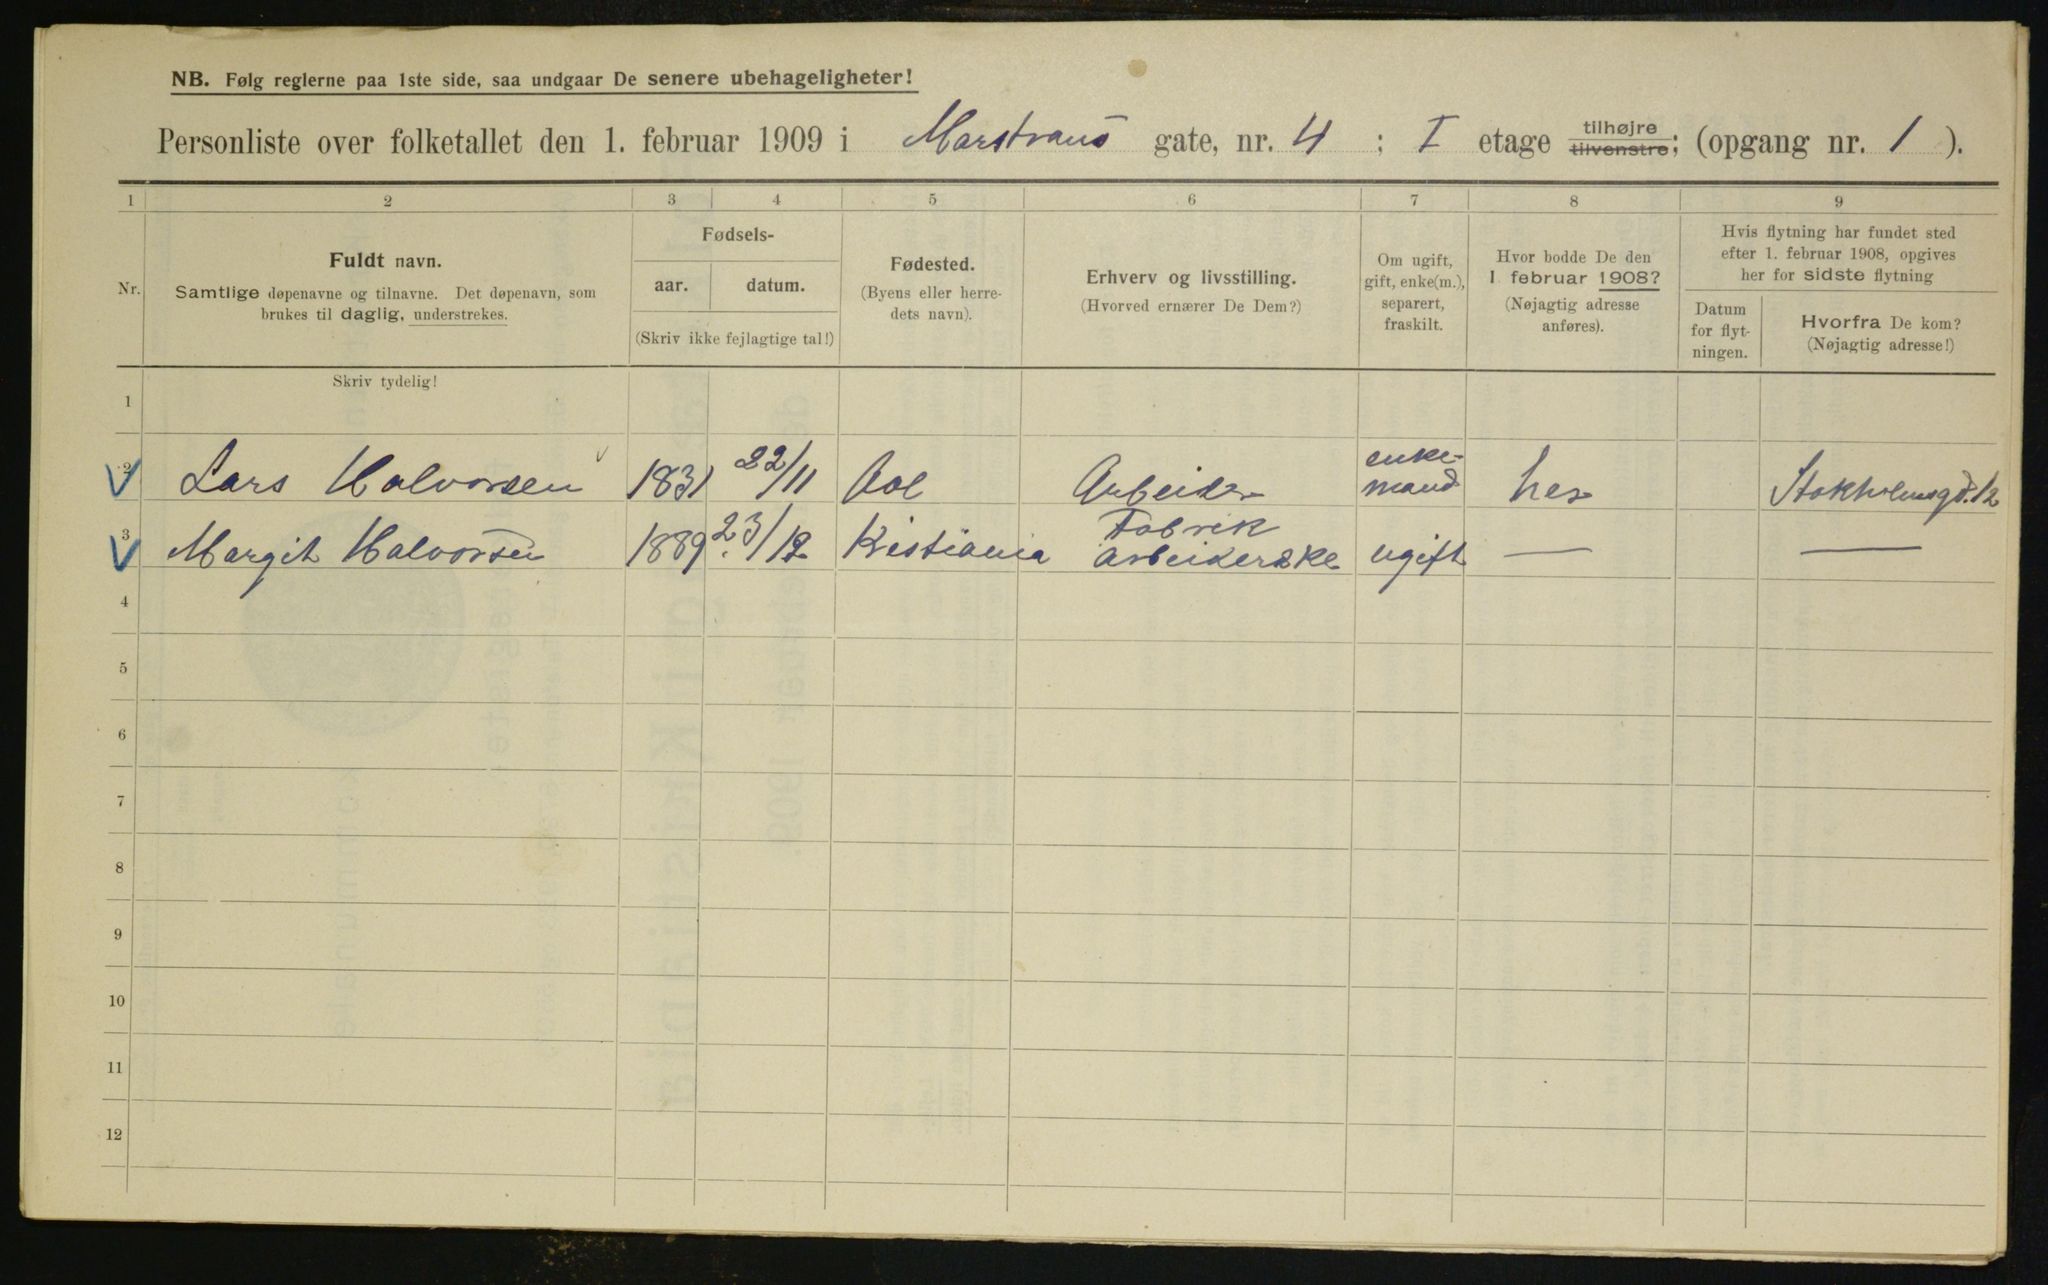 NB. Følg reglerne paa 1ste side, saa undgaar De senere ubehageligheter!
Personliste over folketallet den 1. februar 1909 i Marstrans gate, nr. 4 ; I etage tilhøjre tilvenstre; (opgang nr. 1 ).
1 2 3 4 5 6 7 8 9
Nr.
Fuldt navn.
Samtlige døpenavne og tilnavne. Det døpenavn, som
brukes til daglig, understrekes.
Fødsels-
aar. datum.
(Skriv ikke fejlagtige tal!)
Fødested.
(Byens eller herre-
dets navn).
Erhverv og livsstilling.
(Hvorved ernærer De Dem?)
Om ugift,
gift, enke(m.),
separert,
fraskilt.
Hvor bodde De den
1 februar 1908?
(Nøjagtig adresse
anføres).
Hvis flytning har fundet sted
efter 1. februar 1908, opgives
her for sidste flytning
Datum
for flyt-
ningen.
Hvorfra De kom?
(Nøjagtig adresse!)
Skriv tydelig!
1
2 Lars Halvorsen 1831 22/11 Aol Arbeider enke-
mand her Stokholmsgd. 12
3 Margit Halvorsen 1889 23/12 Kristiania Fabrik
arbeiderske ugift — —
4
5
6
7
8
9
10
11
12